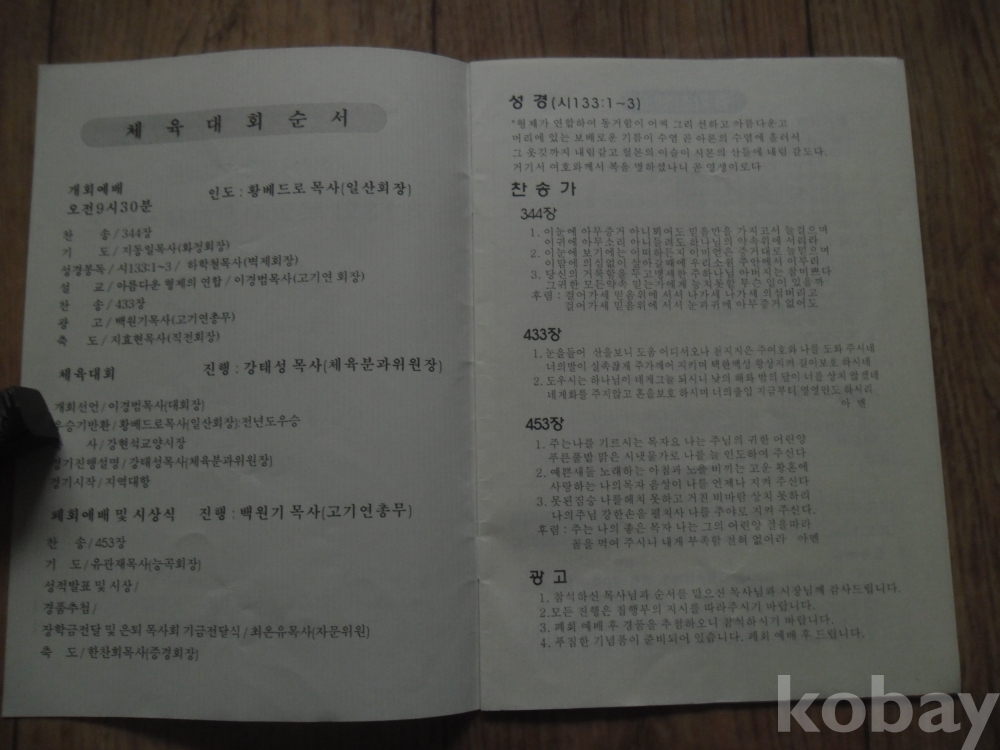 체 육 대 회 순 서
개회예배 인도 : 황베드로 목사(일산회장)
오전9시30분
찬 송/344장
기 도/지동일목사(화정회장)
성경봉독/시133:1~3/ 하학철목사(벽제회장)
설 교/아름다운 형제의 연합/이경범목사(고기연 회장)
찬 송/433장
광 고/백원기목사(고기연총무)
축 도/지효현목사(직전회장)
체육대회 진행 : 강태성 목사(체육분과위원장)
개회선언/이경범목사(대회장)
우승기반환/황베드로목사(일산회장):전년도우승
사/강현석고양시장
경기진행설명/강태성목사(체육분과위원장)
경기시작/지역대항
폐회예배 및 시상식 진행 : 백원기 목사(고기연총무)
찬 송/453장
기 도/유관재목사(능곡회장)
성적발표 및 시상/
경품추첨/
장학금전달 및 은퇴 목사회 기금전달식/최온유목사(자문위원)
축 도/한찬희목사(증경회장)
성 경(시133:1~3)
"형제가 연합하여 동거함이 어찌 그리 선하고 아름다운고
머리에 있는 보배로운 기름이 수염 곧 아론의 수염에 흘러서
그 옷깃까지 내림같고 헐몬의 이슬이 시온의 산들에 내림 같도다.
거기서 여호와께서 복을 명하셨나니 곧 영생이로다
찬 송 가
344장
1. 이눈에 아무증거 아니뵈어도 믿음만을 가지고서 늘걸으며
이귀에 아무소리 아니들려도 하나님의 약속위에 서리라
2. 이눈에 보기에는 어떠하든지 이미얻은 증거대로 늘믿으며
이맘에 의심없이 살아갈때에 우리소원 주안에서 이루리
3. 당신의 거룩함을 두고맹세한 주하나님 아버지는 참미쁘다
그귀한 모든약속 믿는자에게 능치못할 무슨 일이 있을까
후렴 : 걸어가세 믿음위에 서서 나가세 나가세 의심버리고
걸어가세 믿음위에 서서 눈과귀에 아무증거 없어도
433장
1. 눈을들어 산을보니 도움 어디서오나 천지지은 주여호와 나를 도와 주시네
너의발이 실족찮게 주가깨어 지키며 택한백성 항상지키며 길이보호 하시네
2. 도우시는 하나님이 네게그늘 되시니 낮의 해와 밤의 달이 너를 상치 않겠네
네게화를 주지않고 혼을보호 하시며 너의출입 지금부터 영영인도 하시리
아 멘
453장
1. 주는나를 기르시는 목자요 나는 주님의 귀한 어린양
푸른풀밭 맑은 시냇물가로 나를 늘 인도하여 주신다
2. 예쁜새들 노래하는 아침과 노을 비끼는 고운 황혼에
사랑하는 나의목자 음성이 나를 언제나 지켜 주신다
3. 못된짐승 나를해치 못하고 거친 비바람 상치 못하리
나의주님 강한손을 펼치사 나를 주야로 지켜 주신다.
후렴 : 주는 나의 좋은 목자 나는 그의 어린양 철을따라
꼴을 먹여 주시니 내게 부족함 전혀 없어라 아멘
광 고
1. 참석하신 목사님과 순서를 맡으진 목사님과 시장님께 감사드립니다.
2. 모든 진행은 집행부의 지시를 따라주시기 바랍니다.
3. 폐회 예배 후 경품을 추첨하오니 참석하시기 바랍니다.
4. 푸짐한 기념품이 준비되어 있습니다. 폐회 예배 후 드립니다.
kobay